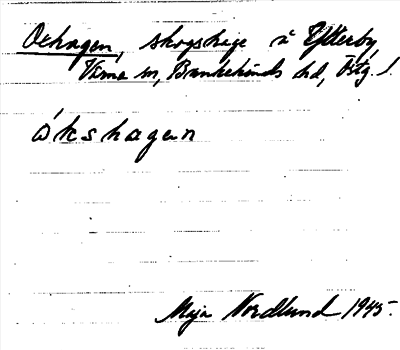 Oxhagen, skogshage å Ytterby
Viena sn, Bankekinds hd, Östg. l.
ókshagen
Maja Nordlund 1945.